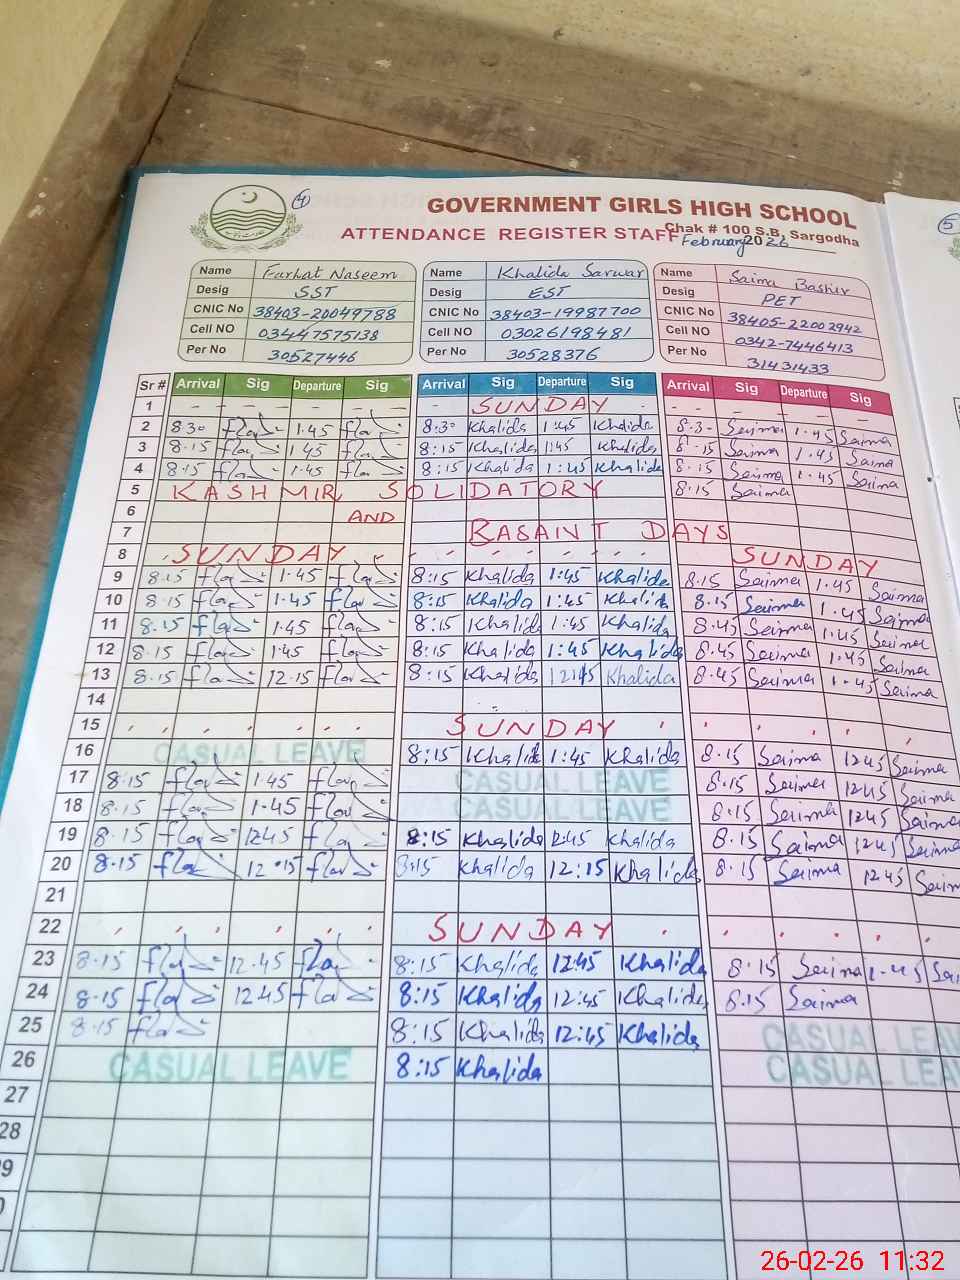 4
GOVERNMENT GIRLS HIGH SCHOOL
Chak # 100 S.B, Sargodha
ATTENDANCE REGISTER STAFF February 2026
5
Name Farhat Naseem Name Khalida Sarwar Name Saima Bashir
Desig SST Desig EST Desig PET
CNIC No 38403-20049788 CNIC No 38403-19987700 CNIC No 38405-22002942
Cell NO 03447575138 Cell NO 03026198481 Cell NO 0342-7446413
Per No 30527446 Per No 30528376 Per No 31431433
Sr # Arrival Sig Departure Sig Arrival Sig Departure Sig Arrival Sig Departure Sig
1 SUNDAY
2 8.30 1.45 8:30 Khalida 1:45 Khalida 8.30 Saima 1.45 Saima
3 8.15 1.45 8:15 Khalida 1:45 Khalida 8.15 Saima 1.45 Saima
4 8.15 1.45 8:15 Khalida 1:45 Khalida 8.15 Saima 1.45 Saima
5 KASHMIR SOLIDATORY 8.15 Saima
6 AND
7 BASAINT DAYS
8 SUNDAY SUNDAY
9 8.15 1.45 8:15 Khalida 1:45 Khalida 8.15 Saima 1.45 Saima
10 8.15 1.45 8:15 Khalida 1:45 Khalida 8.15 Saima 1.45 Saima
11 8.15 1.45 8:15 Khalida 1:45 Khalida 8.45 Saima 1.45 Saima
12 8.15 1.45 8:15 Khalida 1:45 Khalida 8.45 Saima 1.45 Saima
13 8.15 12.15 8:15 Khalida Khalida 8.45 Saima 1.45 Saima
14
15 SUNDAY
16 CASUAL LEAVE 8:15 Khalida 1:45 Khalida 8.15 Saima 1245 Saima
17 8.15 1.45 CASUAL LEAVE 8.15 Saima 1245 Saima
18 8.15 1.45 CASUAL LEAVE 8.15 Saima 1245 Saima
19 8.15 1245 8:15 Khalida 12:45 Khalida 8.15 Saima 1245 Saima
20 8.15 12.15 8:15 Khalida 12:15 Khalida 8.15 Saima 1245 Saima
21
22 SUNDAY
23 8.15 12.45 8:15 Khalida 12:45 Khalida 8.15 Saima 1.45 Sai
24 8.15 1245 8:15 Khalida 12:45 Khalida 8.15 Saima
25 8.15 8:15 Khalida 12:45 Khalida CASUAL LEA
26 CASUAL LEAVE 8:15 Khalida CASUAL LEA
27
28
9
26-02-26 11:32